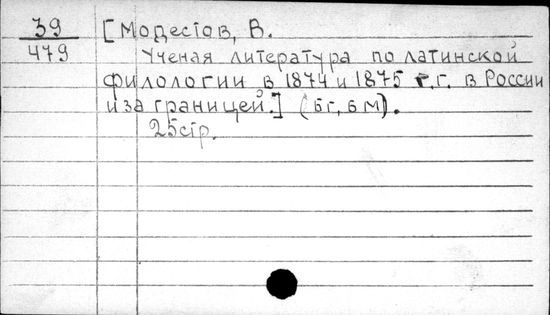 39 [Модестов, В.
479 Ученая литература по латинской
филологии в 1874 и 1875 г.г. в России
и за границей.] (б г, б м).
25 стр.